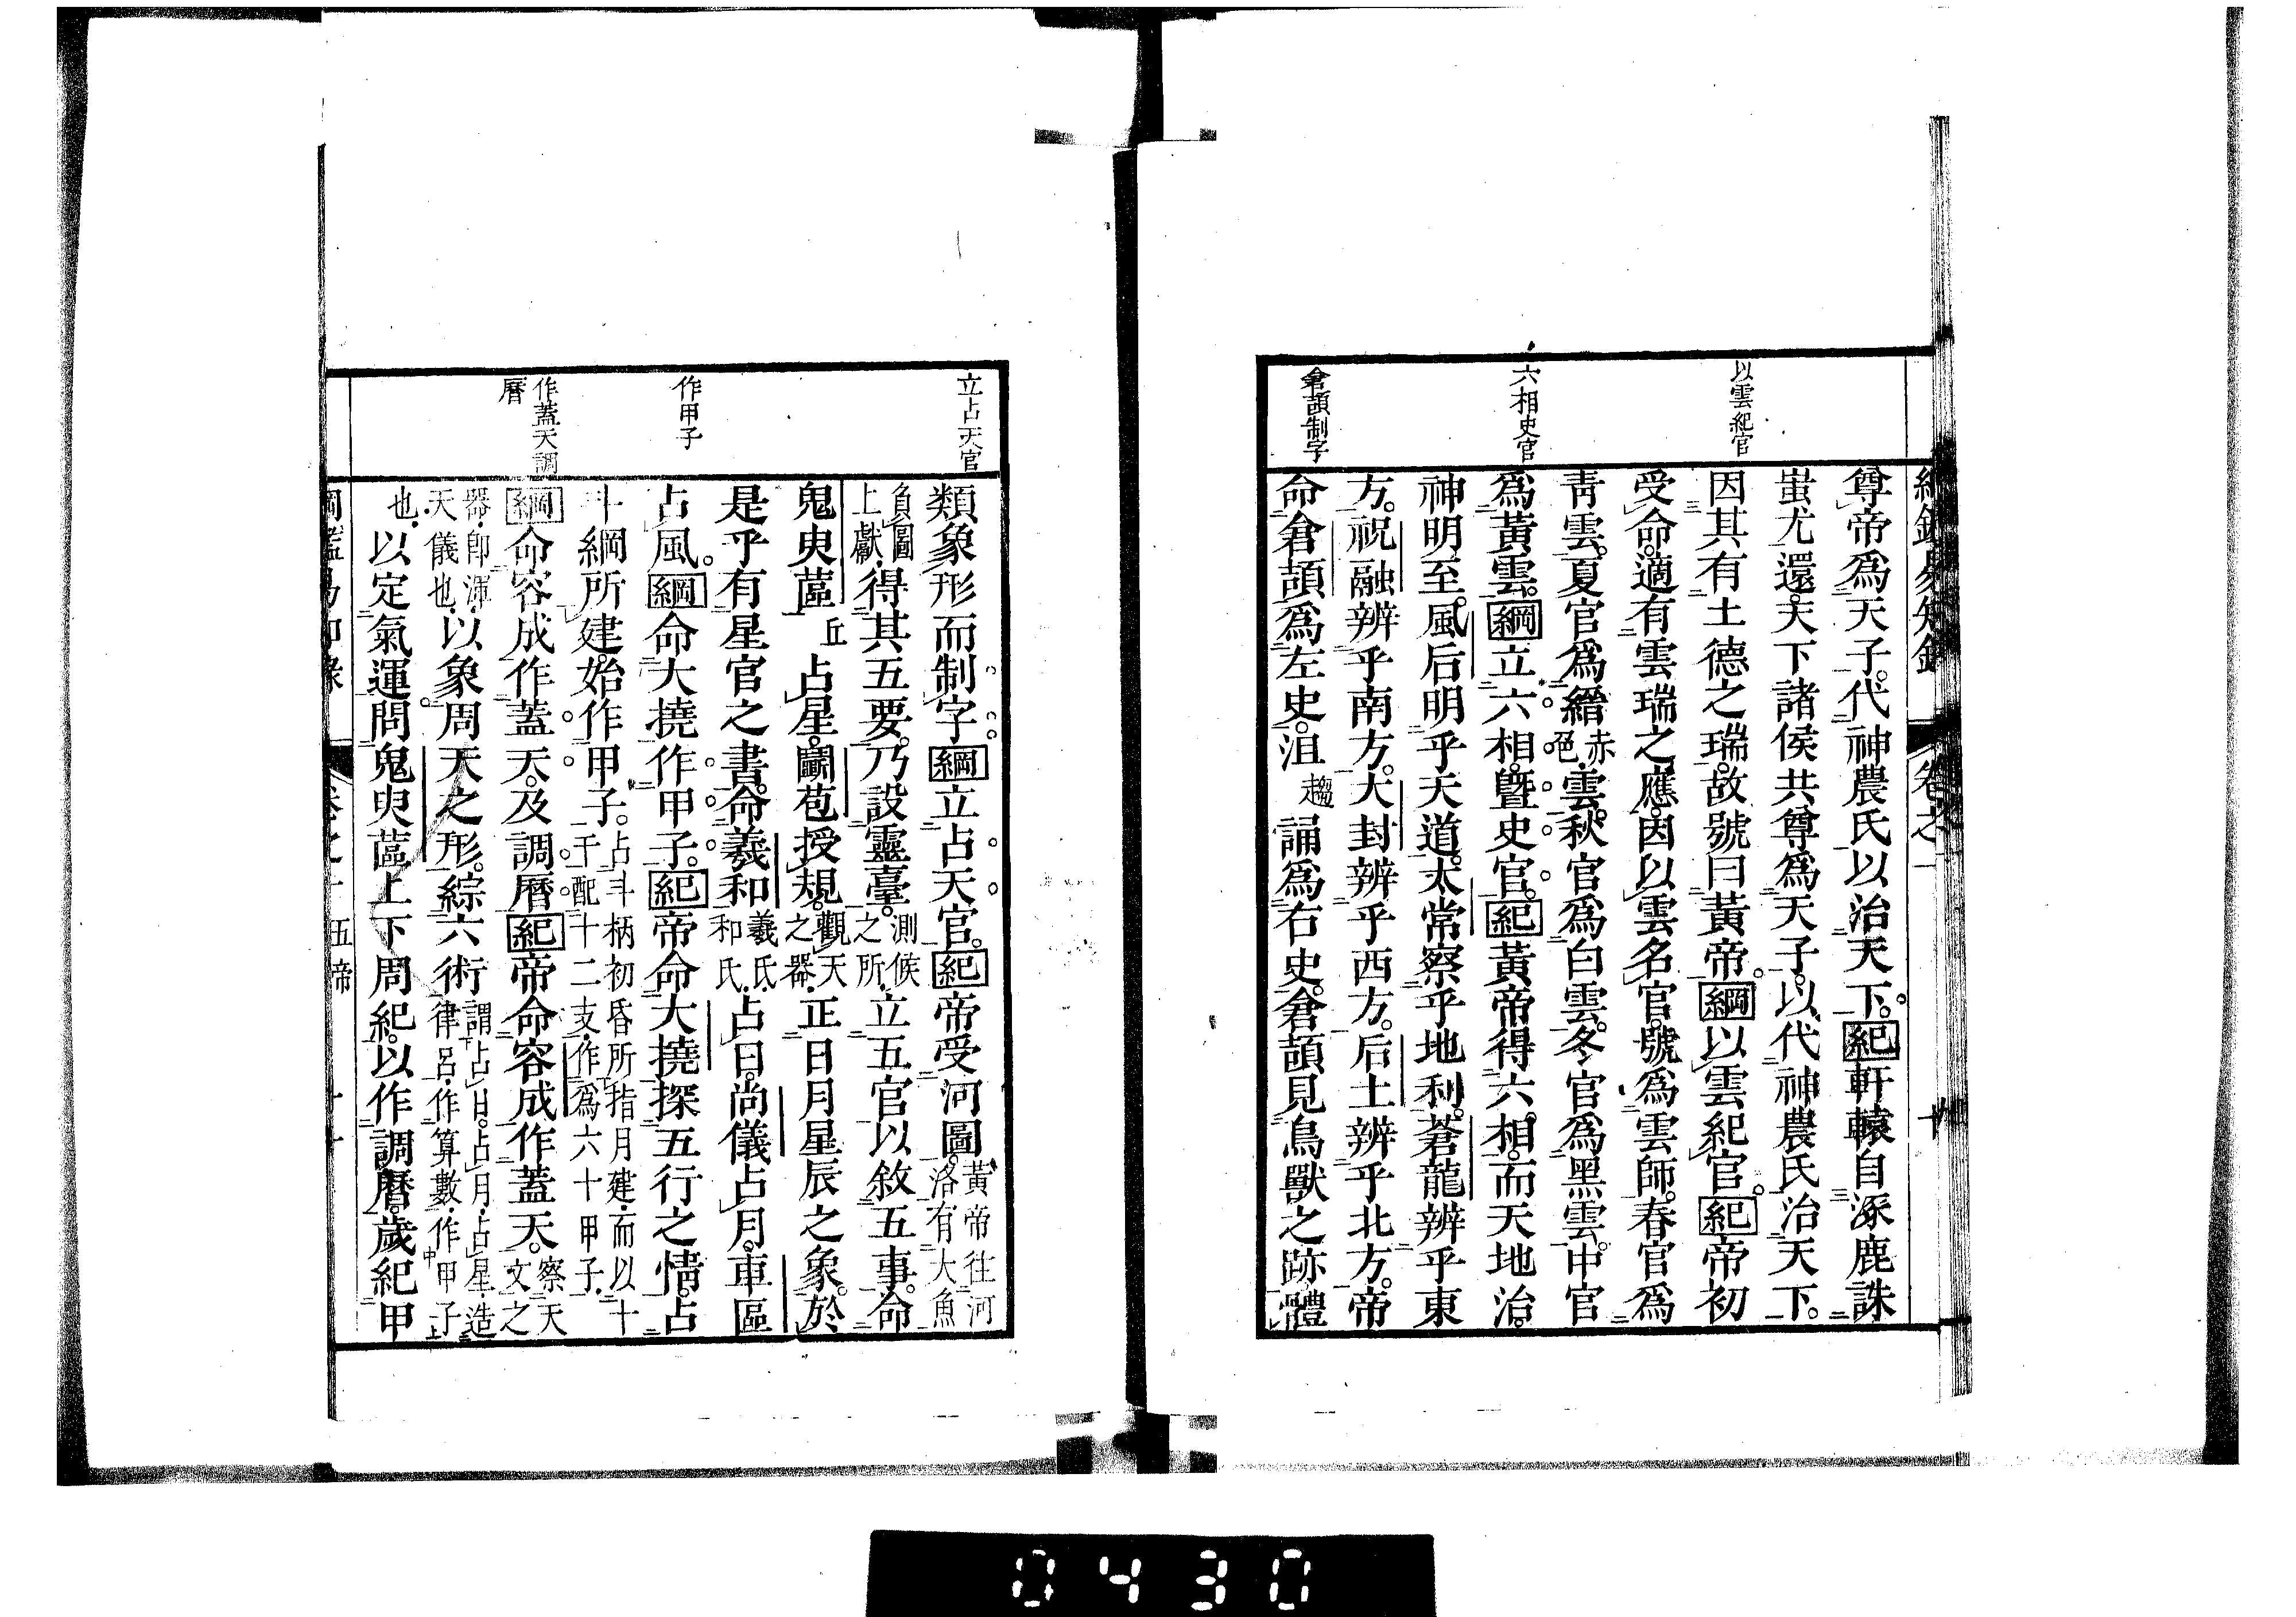 以雲紀官
六相史官
倉頡制字
尊帝爲天子。代神農氏以治天下。紀軒轅自涿鹿誅
蚩尤還。天下諸侯共尊爲天子。以代神農氏治天下。
因其有土德之瑞。故號曰黃帝。綱以雲紀官。紀帝初
受命。適有雲瑞之應。因以雲名官。號爲雲師。春官爲
靑雲。夏官爲縉赤色雲。秋官爲白雲。冬官爲黑雲。中官
爲黃雲。綱立六相。曁史官。紀黃帝得六相。而天地治。
神明至。風后明乎天道。太常察乎地利。蒼龍辨乎東
方。祝融辨乎南方。大封辨乎西方。后土辨乎北方。帝
命倉頡爲左史。沮趨誦爲右史。倉頡見鳥獸之跡。體
卷之一
十
立占天官
作甲子
作蓋天調
曆
類象形而制字。綱立占天官。紀帝受河圖。黃帝往河洛有大魚
負圖上獻。得其五要。乃設靈臺。測候之所。立五官以敘五事。命
鬼臾蓲丘占星。鬬苞授規。觀天之器。正日月星辰之象。於
是乎有星官之書。命羲和羲氏和氏。占日。尚儀占月。車區
占風。綱命大撓作甲子。紀帝命大撓探五行之情。占
斗綱所建。始作甲子。占斗柄初昏所指月建。而以十干配十二支。作爲六十甲子。
綱命容成作蓋天。及調曆。紀帝命容成作蓋天。察天文之
器。卽渾天儀也。以象周天之形。綜六術謂占日。占月。占星。造律呂。作算數。作甲子
也。以定氣運。問鬼臾蓲。上下周紀。以作調曆。歲紀甲
五帝